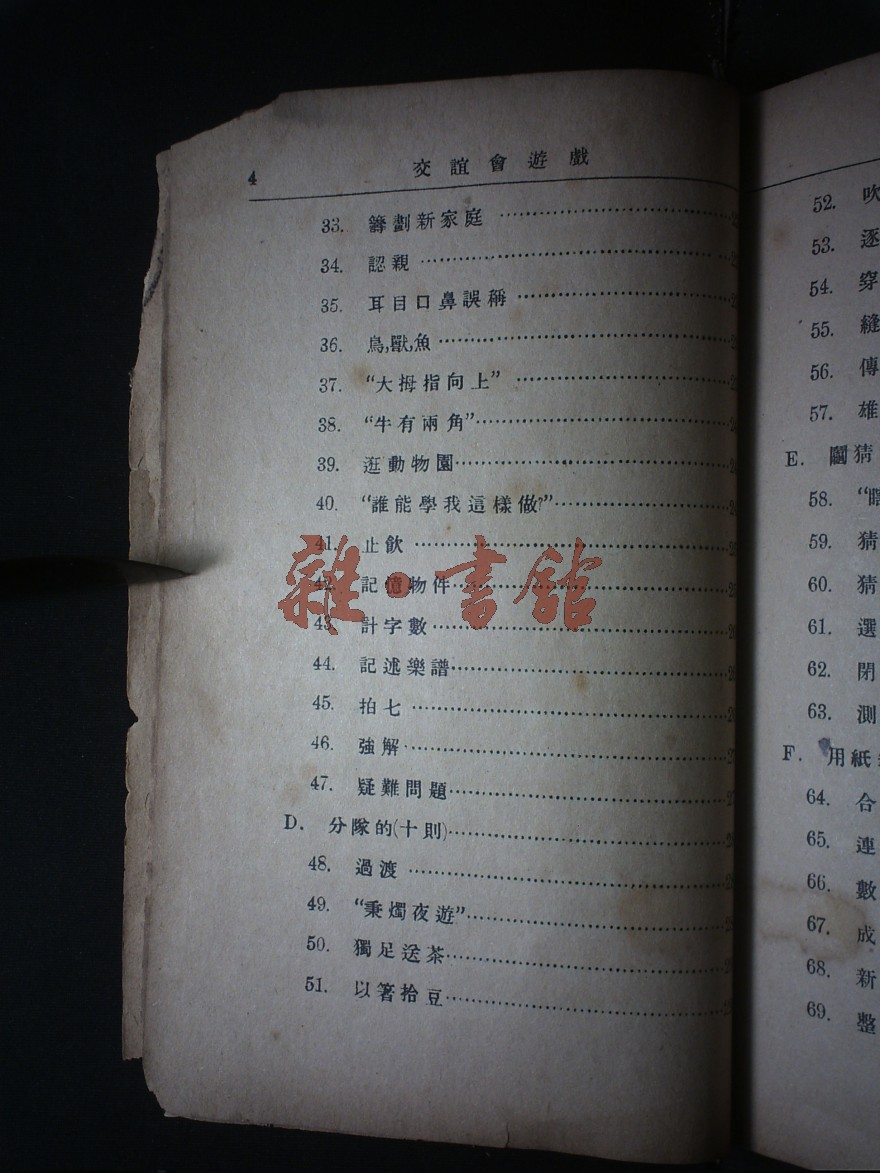 4 交誼會遊戲
33. 籌劃新家庭
34. 認親
35. 耳目口鼻誤稱
36. 鳥,獸,魚
37. “大拇指向上”
38. “牛有兩角”
39. 逛動物園
40. “誰能學我這樣做?”
41. 止飲
42. 記憶物件
43. 計字數
44. 記述樂譜
45. 拍七
46. 強解
47. 疑難問題
D. 分隊的(十則)
48. 過渡
49. “秉燭夜遊”
50. 獨足送茶
51. 以箸拾豆
雜·書館
52. 吹
53. 逐
54. 穿
55. 縫
56. 傳
57. 雄
E. 鬭猜
58. “瞎
59. 猜
60. 猜
61. 選
62. 閉
63. 測
F. 用紙
64. 合
65. 連
66. 數
67. 成
68. 新
69. 整